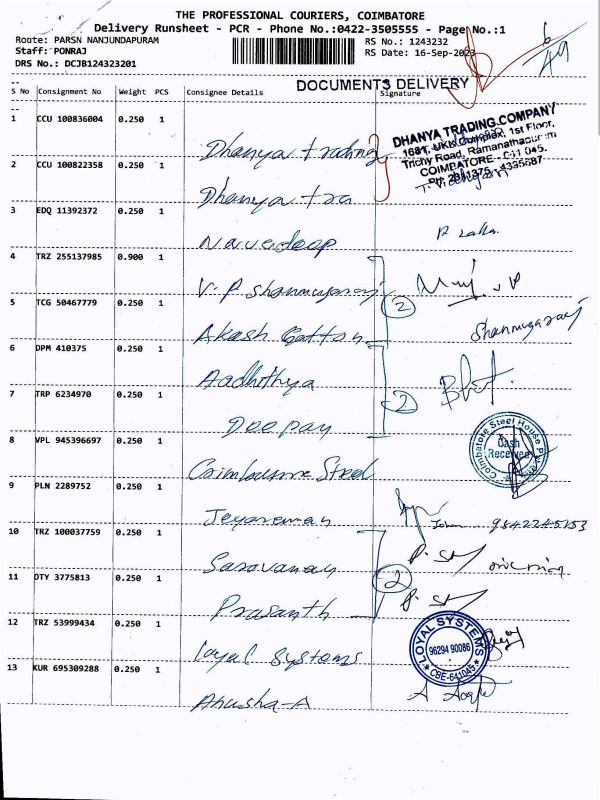 THE PROFESSIONAL COURIERS, COIMBATORE
Delivery Runsheet - PCR - Phone No.:0422-3505555 - Page No.:1
Route: PARSN NANJUNDAPURAM
RS No.: 1243232
Staff: PONRAJ
RS Date: 16-Sep-2023
DRS No.: DCJB124323201
DOCUMENTS DELIVERY
S No Consignment No Weight PCS Consignee Details Signature
1 CCU 100836004 0.250 1
Dhanya trading
DHANYA TRADING COMPANY
1681, UKK Complex, 1st Floor,
Trichy Road, Ramanathapuram
COIMBATORE - 641 045.
2 CCU 100822358 0.250 1
Dhanya tra
3 EDQ 11392372 0.250 1
Navendeep
4 TRZ 255137985 0.900 1
V.P Shanmugaraj
2
5 TCG 50467779 0.250 1
Akash Cotton
Shanmugaraj
6 DPM 410375 0.250 1
Aadhithya
7 TRP 6234970 0.250 1
2
Deepay
8 VPL 945396697 0.250 1
Coimbatore Steel
Coimbatore Steel House
Cash
Received
9 PLN 2289752 0.250 1
Jeyaraman
10 TRZ 100037759 0.250 1
Saravanan
2
11 DTY 3775813 0.250 1
Prasanth
12 TRZ 53999434 0.250 1
Loyal Systems
LOYAL SYSTEMS
96294 90086
CBE-641045
13 KUR 695309288 0.250 1
Anusha-A